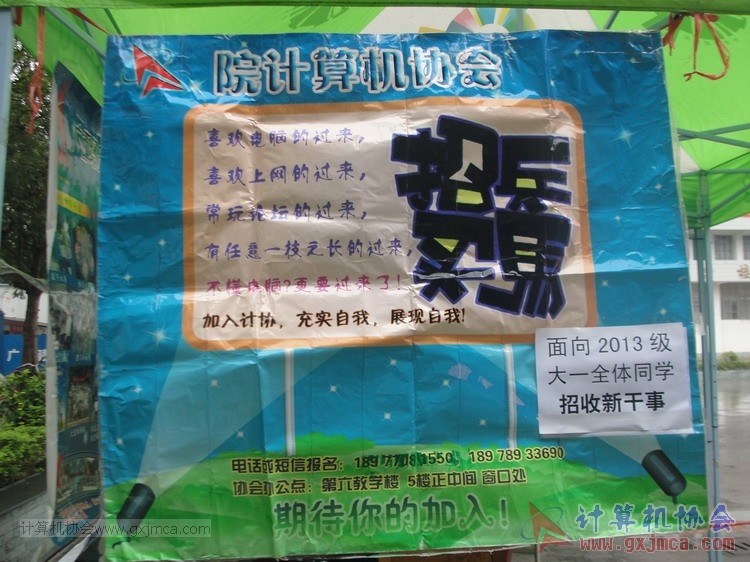 院计算机协会
喜欢电脑的过来，
喜欢上网的过来，
常玩论坛的过来，
有任意一枝之长的过来，
不懂电脑?更要过来了!
加入计协，充实自我，展现自我!
招兵
买马
面向 2013 级
大一全体同学
招收新干事
电话或短信报名： 189 7708 1550、189 789 33690
协会办公点：第六教学楼 5楼正中间 窗口处
期待你的加入！
计算机协会www.gxjmca.com
计算机协会
www.gxjmca.com
广